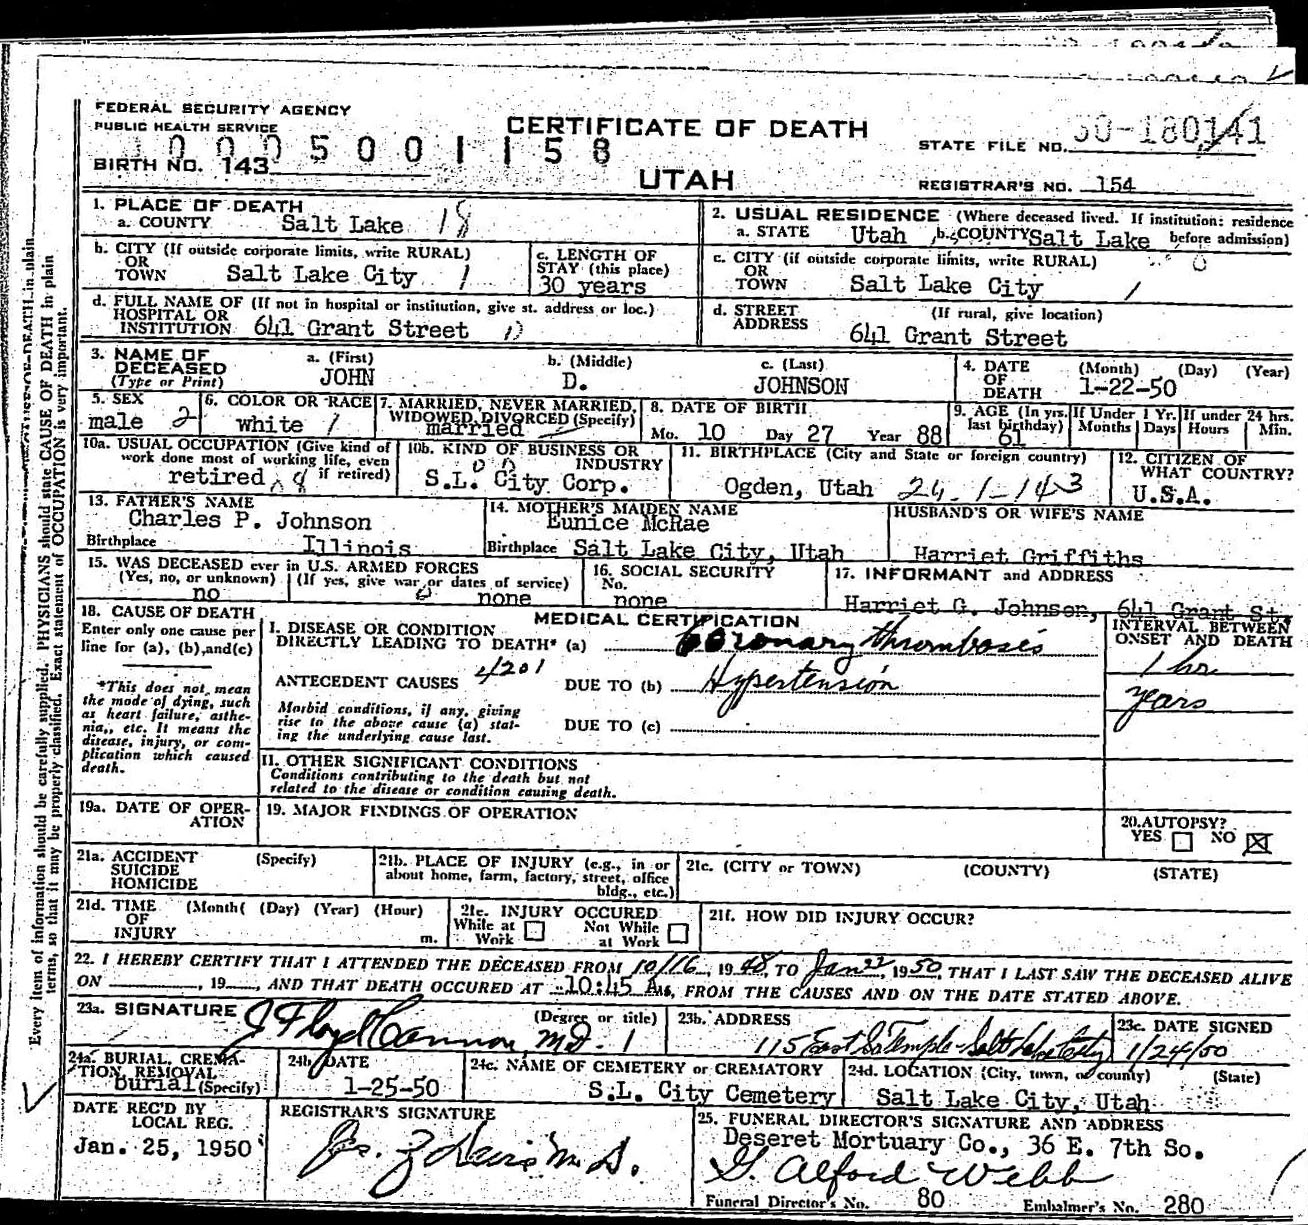 FEDERAL SECURITY AGENCY
PUBLIC HEALTH SERVICE
10005001158
CERTIFICATE OF DEATH
UTAH
BIRTH NO. 143
STATE FILE NO. 50-180141
REGISTRAR'S NO. 154
1. PLACE OF DEATH
a. COUNTY Salt Lake 18
2. USUAL RESIDENCE (Where deceased lived. If institution: residence before admission)
a. STATE Utah b. COUNTY Salt Lake
b. CITY (If outside corporate limits, write RURAL)
OR
TOWN Salt Lake City 1
c. LENGTH OF
STAY (this place)
30 years
c. CITY (if outside corporate limits, write RURAL)
OR
TOWN Salt Lake City 1
d. FULL NAME OF (If not in hospital or institution, give st. address or loc.)
HOSPITAL OR
INSTITUTION 641 Grant Street
d. STREET (If rural, give location)
ADDRESS 641 Grant Street
3. NAME OF
DECEASED
(Type or Print)
a. (First)
JOHN
b. (Middle)
D.
c. (Last)
JOHNSON
4. DATE (Month) (Day) (Year)
OF
DEATH 1-22-50
5. SEX
male 2
6. COLOR OR RACE
white 1
7. MARRIED, NEVER MARRIED,
WIDOWED, DIVORCED (Specify)
married
8. DATE OF BIRTH
Mo. 10 Day 27 Year 88
9. AGE (In yrs.
last birthday)
61
If Under 1 Yr.
Months Days
If under 24 hrs.
Hours Min.
10a. USUAL OCCUPATION (Give kind of
work done most of working life, even
if retired)
retired
10b. KIND OF BUSINESS OR
INDUSTRY
S.L. City Corp.
11. BIRTHPLACE (City and State or foreign country)
Ogden, Utah 24-1-143
12. CITIZEN OF
WHAT COUNTRY?
U.S.A.
13. FATHER'S NAME
Charles P. Johnson
Birthplace Illinois
14. MOTHER'S MAIDEN NAME
Eunice McRae
Birthplace Salt Lake City, Utah
HUSBAND'S OR WIFE'S NAME
Harriet Griffiths
15. WAS DECEASED ever in U.S. ARMED FORCES
(Yes, no, or unknown) (If yes, give war or dates of service)
no 0 none
16. SOCIAL SECURITY
No.
none
17. INFORMANT and ADDRESS
Harriet G. Johnson, 641 Grant St.
18. CAUSE OF DEATH
Enter only one cause per
line for (a), (b), and(c)
*This does not mean
the mode of dying, such
as heart failure, asthe-
nia,, etc. It means the
disease, injury, or com-
plication which caused
death.
MEDICAL CERTIFICATION
I. DISEASE OR CONDITION
DIRECTLY LEADING TO DEATH* (a) Coronary thrombosis
ANTECEDENT CAUSES 4201 DUE TO (b) Hypertension
Morbid conditions, if any, giving
rise to the above cause (a) stat-
ing the underlying cause last.
DUE TO (c)
INTERVAL BETWEEN
ONSET AND DEATH
1 hr
years
II. OTHER SIGNIFICANT CONDITIONS
Conditions contributing to the death but not
related to the disease or condition causing death.
19a. DATE OF OPER-
ATION
19. MAJOR FINDINGS OF OPERATION
20. AUTOPSY?
YES NO
21a. ACCIDENT (Specify)
SUICIDE
HOMICIDE
21b. PLACE OF INJURY (e.g., in or
about home, farm, factory, street, office
bldg., etc.)
21c. (CITY or TOWN) (COUNTY) (STATE)
21d. TIME (Month( (Day) (Year) (Hour)
OF
INJURY m.
21e. INJURY OCCURED
While at Work Not While at Work
21f. HOW DID INJURY OCCUR?
22. I HEREBY CERTIFY THAT I ATTENDED THE DECEASED FROM 10/16, 1948, TO Jan 22, 1950, THAT I LAST SAW THE DECEASED ALIVE
ON , 19 , AND THAT DEATH OCCURED AT 10:45 A m., FROM THE CAUSES AND ON THE DATE STATED ABOVE.
23a. SIGNATURE (Degree or title)
J Floyd Cannon M.D. 1
23b. ADDRESS
115 East So Temple - Salt Lake City
23c. DATE SIGNED
1/24/50
24a. BURIAL, CREMA-
TION, REMOVAL
burial (Specify)
24b. DATE
1-25-50
24c. NAME OF CEMETERY or CREMATORY
S.L. City Cemetery
24d. LOCATION (City, town, or county) (State)
Salt Lake City, Utah
DATE REC'D BY
LOCAL REG.
Jan. 25, 1950
REGISTRAR'S SIGNATURE
M.D.
25. FUNERAL DIRECTOR'S SIGNATURE AND ADDRESS
Deseret Mortuary Co., 36 E. 7th So.
G. Alford Webb
Funeral Director's No. 80 Embalmer's No. 280
Every item of information should be carefully supplied. PHYSICIANS should state CAUSE OF DEATH in plain
terms, so that it may be properly classified. Exact statement of OCCUPATION is very important.